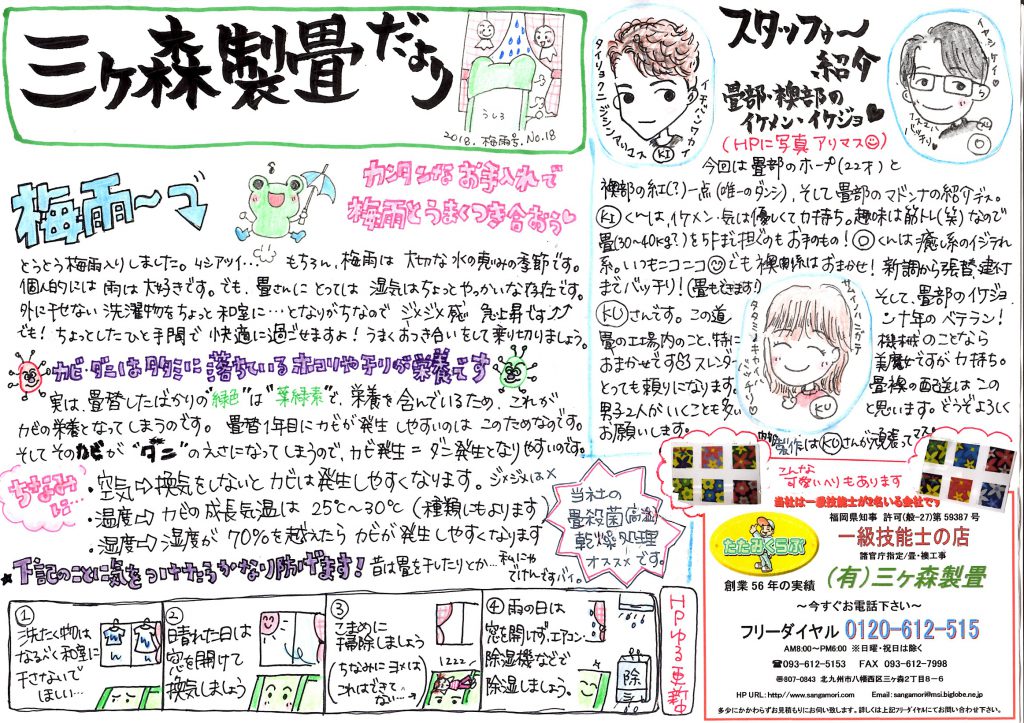 三ヶ森製畳だより
うしろ
2018.梅雨号.No.18
梅雨〜
カンタンなお手入れで
梅雨とうまくつき合おう
とうとう梅雨入りしました。ムシアツイ… もちろん、梅雨は大切な水の恵みの季節です。
個人的には雨は大好きです。でも、畳さんにとっては湿気はちょっとやっかいな存在です。
外に干せない洗濯物をちょっと和室に…となりがちなのでジメジメ感急上昇です
でも!ちょっとしたひと手間で快適に過ごせますよ!うまくお付き合いをして乗り切りましょう。
カビ・ダニはタタミに落ちているホコリやチリが栄養です
実は、畳替したばかりの“緑色”は“葉緑素”で、栄養を含んでいるため、これが
カビの栄養となってしまうのです。畳替1年目にカビが発生しやすいのはこのためなのです。
そしてそのカビが“ダニ”のえさになってしまうので、カビ発生=ダニ発生となりやすいのです。
ちなみに…
・空気⇨換気をしないとカビは発生しやすくなります。ジメジメは×
・温度⇨カビの成長気温は25℃〜30℃(種類にもよります)
・湿度⇨湿度が70%を越えたらカビが発生しやすくなります
当社の
畳殺菌(高温)
乾燥処理
オススメです。
★下記のことに気をつけたらかなり防げます!昔は畳を干したりとか…私にゃ
でけんですバイ。
①
洗たく物は
なるべく和室に
干さないで
ほしい…
②
晴れた日は
窓を開けて
換気しましょう
③
こまめに
掃除しましょう
(ちなみにヨメは
これはできて
ない…)
④雨の日は
窓を開けず、エアコン
除湿機などで
除湿しましょう。
除
HPゆる更新中
スタッフゥ〜
紹介
畳部・襖部の
イケメン・イケジョ
(HPに写真アリマス)
タイリョクニジシンアリマス
KI
今回は畳部のホープ(22才)と
襖部の紅(?)一点(唯一のダンシ)、そして畳部のマドンナの紹介デス。
KIくんは、イケメン・気は優しくて力持ち。趣味は筋トレ(笑)なので
畳(30〜40kg?)を5Fまで担ぐのもお手のもの!〇くんは癒し系のイジラれ
系。いつもニコニコでも襖関係はおまかせ!新調から張替、建付
までバッチリ!(畳もできます) そして、畳部のイケジョ
KUさんです。この道 ン十年のベテラン!
畳の工場内のこと、特に 機械のことなら
おまかせです スレンダー 美魔女ですが力持ち。
とっても頼りになります。 畳襖の配送はこの
男子2人がいくことも多い と思います。どうぞよろしく
お願いします。
製作はKUさんが頑張ってマス
KU
こんな
可愛いヘリもあります
当社は一級技能士が2名いる会社です
福岡県知事 許可(般-27)第59387号
たたみくらぶ
一級技能士の店
諸官庁指定/畳・襖工事
創業56年の実績
(有)三ヶ森製畳
〜今すぐお電話下さい〜
フリーダイヤル 0120-612-515
AM8:00〜PM6:00 ※日曜・祝日は除く
☎093-612-5153 FAX 093-612-7998
〒807-0843 北九州市八幡西区三ヶ森2丁目8-6
HP URL: http://www.sangamori.com Email: sangamori@msi.biglobe.ne.jp
多少にかかわらずお見積もりにお伺い致します。詳しくは上記フリーダイヤルにてお問い合わせ下さい。